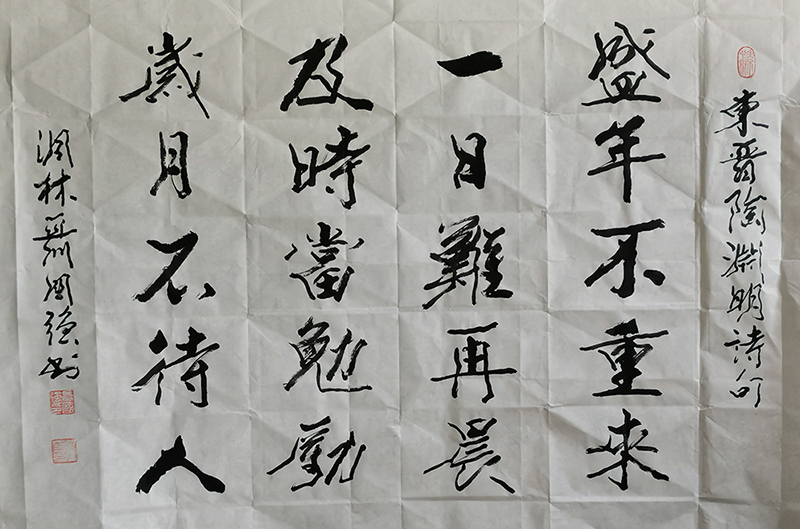 東晉陶淵明詩句
盛年不重來
一日難再晨
及時當勉勵
歲月不待人
林国強书